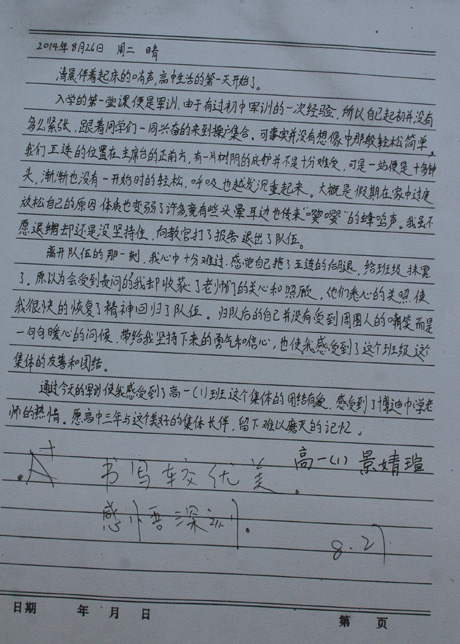 2014年8月26日 周二 晴
清晨伴着起床的哨声,高中生活的第一天开始了。
入学的第一堂课便是军训,由于有过初中军训的一次经验,所以自己起初并没有
多么紧张,跟着同学们一同兴奋的来到操场集合。可事实并没有想像中那般轻松简单。
我们五连的位置在主席台的正前方,有一片树阴的庇护并不是十分难受,可是一站便是十多分钟
头,渐渐也没有一开始时的轻松,呼吸也越发沉重起来。大概是假期在家中过度
放松自己的原因,体质也变弱了许多竟有些头晕耳边也传来"嘤嘤"的蜂鸣声。我虽不
愿退缩却还是没坚持住,向教官打了报告退出了队伍。
离开队伍的那一刻,我心中十分难过,感觉自己拖了五连的后退,给班级抹黑
了。原以为会受到责问的我却收获了老师们的关心和照顾,他们悉心的关照使
我很快的恢复了精神回归了队伍。归队后的自己并没有受到周围人的嘲笑而是
一句句暖心的问候,带给我坚持下来的勇气和信心,也使我感受到了这个班级这个
集体的友善和团结。
通过今天的军训使我感受到了高一(1)班这个集体的团结友爱,感受到了博迪中学老
师的热情。愿高中三年与这个美好的集体长伴,留下难以磨灭的记忆。
高一(1) 景婧瑄
A+ 书写较优美.
感悟深刻.
8.27
日期 年 月 日 第 页